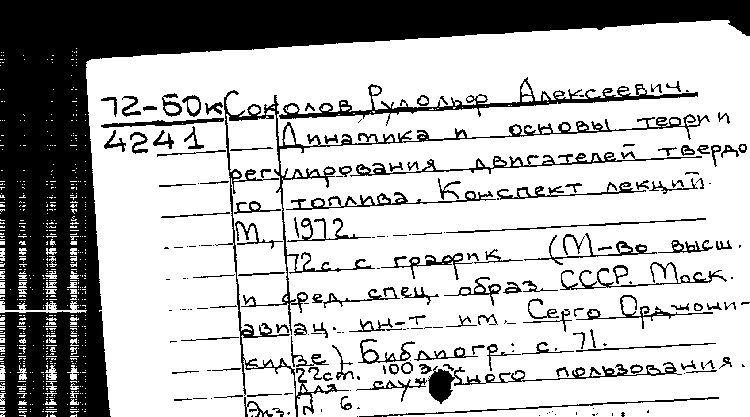 72-50к Соколов, Рудольф Алексеевич.
4241 Динатика и основы теории
регулирования двигателей твердо
го топлива. Конспект лекций.
М., 1972.
72 с. с график (М-во высш.
и сред. спец. образ. СССР. Моск.
авиац. ин-т им. Серго Орджони-
кидзе). Библиогр.: с. 71.
22 ст. 100 экз.
Для служебного пользования.
Экз. N. 6.